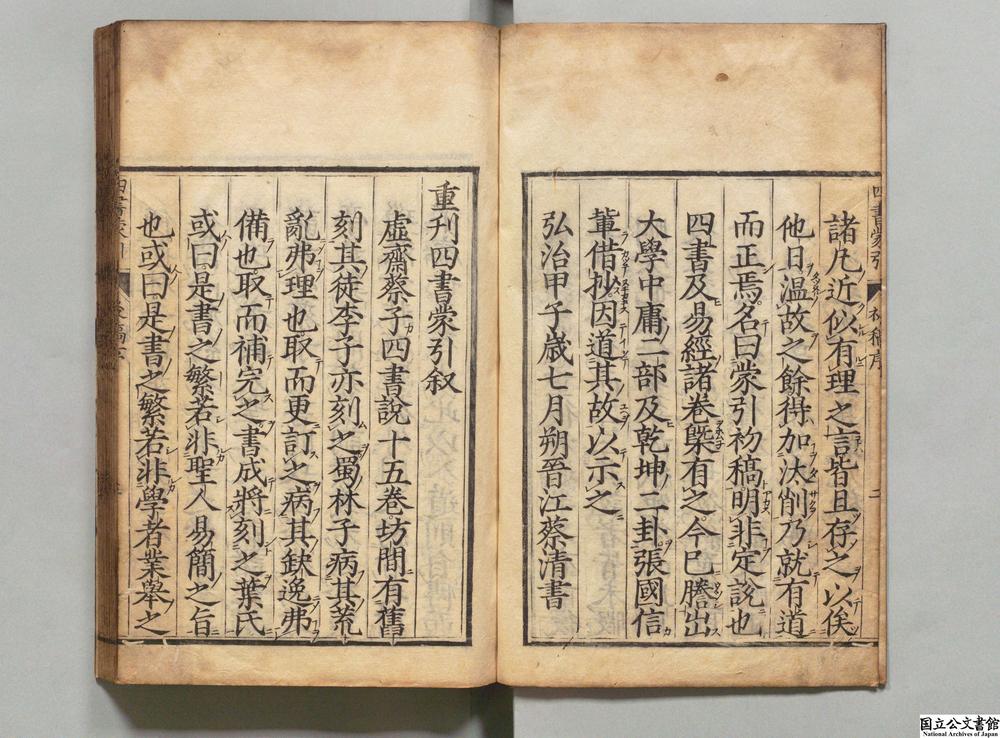 諸凡近似有理之言皆且存之以俟
他日温故之餘得加汰削乃就有道
而正焉名曰蒙引初稿明非定說也
四書及易經諸卷槩有之今已謄出
大學中庸二部及乾坤二卦張國信
軰借抄因道其故以示之
弘治甲子歲七月朔晉江蔡清書
重刊四書蒙引叙
虛齋蔡子四書說十五卷坊間有舊
刻其徒李子亦刻之蜀林子病其荒
亂弗理也取而更訂之病其缺逸弗
備也取而補完之書成將刻之葉氏
或曰是書之繁若非聖人易簡之旨
也或曰是書之繁若非學者業舉之
国立公文書館
National Archives of Japan